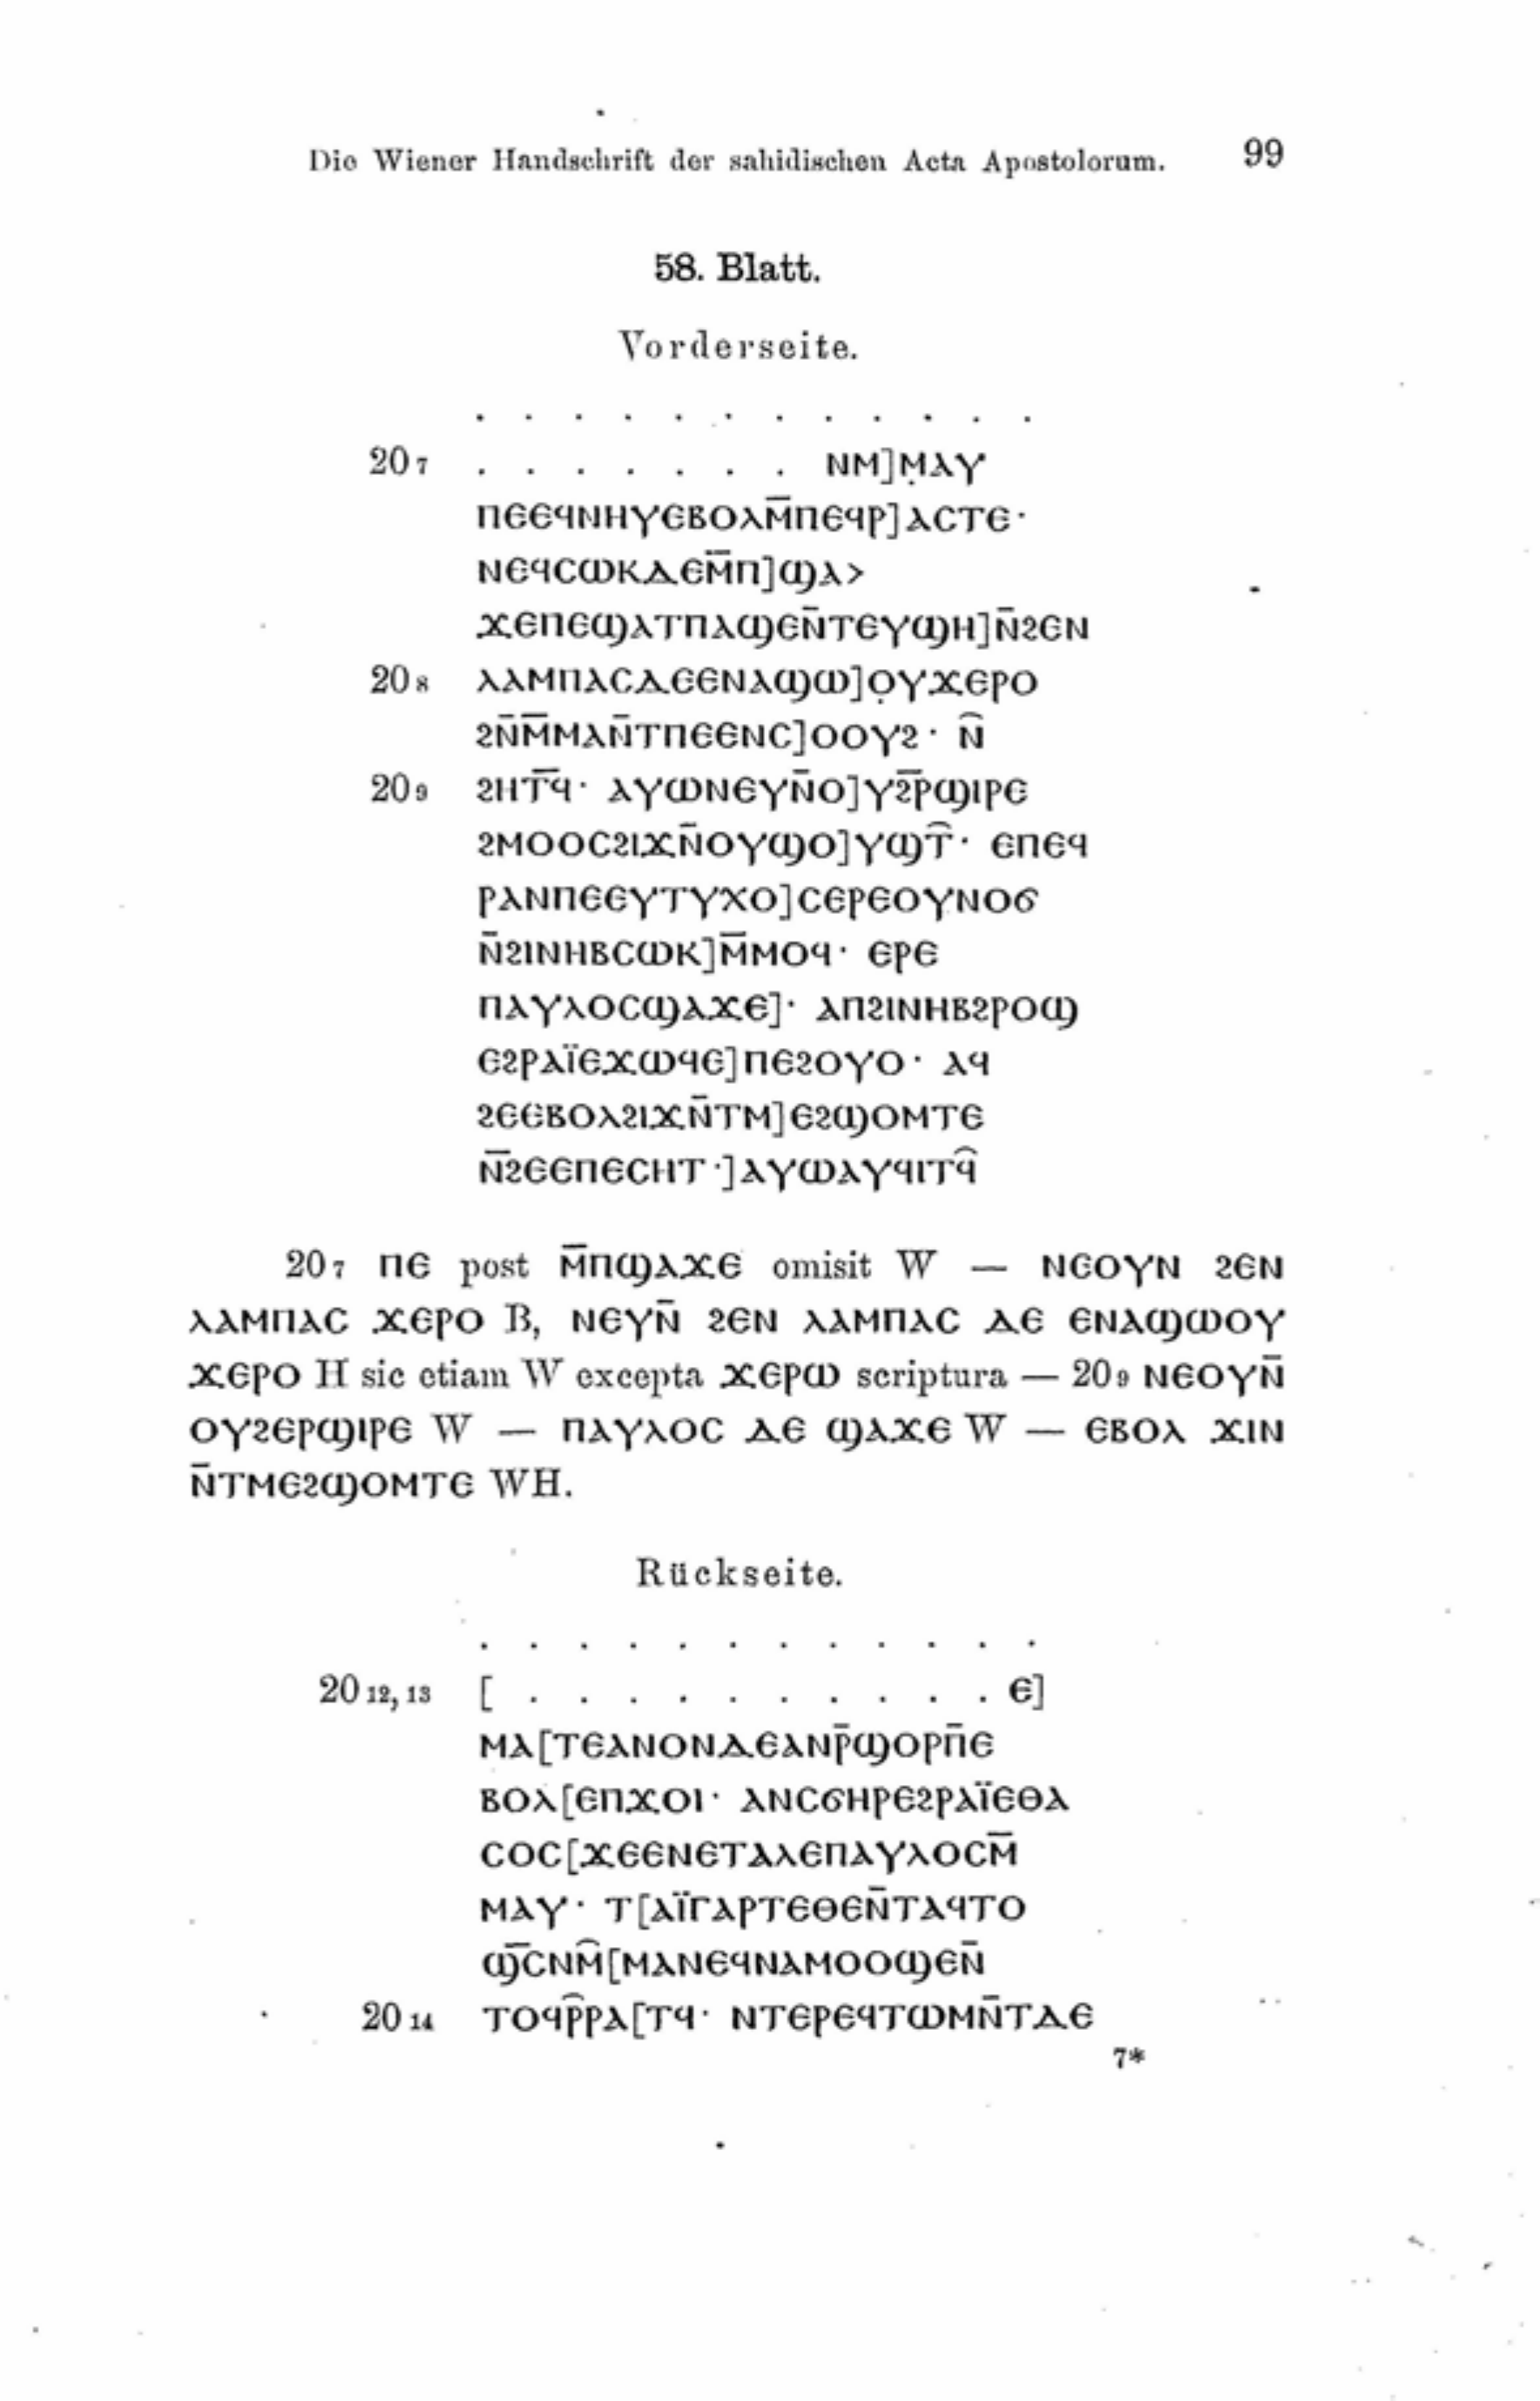 Die Wiener Handschrift der sahidischen Acta Apostolorum. 99
58. Blatt.
Vorderseite.
. . . . . . . . . . . .
20 7 . . . . . . . ⲚⲘ]Ⲙ̣ⲀⲨ
ⲠⲈⲈϤⲚⲎⲨⲈⲂⲞⲖⲘ̅ⲠⲈϤⲢ]ⲀⲤⲦⲈ·
ⲚⲈϤⲤⲰⲔⲆⲈⲘ̅Ⲡ]ϢⲀ>
ϪⲈⲠⲈϢⲀⲦⲠⲀϢⲈⲚ̅ⲦⲈⲨϢⲎ]Ⲛ̅ϨⲈⲚ
20 8 ⲖⲀⲘⲠⲀⲤⲆⲈⲈⲚⲀϢⲰ]Ⲟ̣ⲨϪⲈⲢⲞ
ϨⲚ̅Ⲙ̅ⲘⲀⲚ̅ⲦⲠⲈⲈⲚⲤ]ⲞⲞⲨϨ· Ⲛ̑
20 9 ϨⲎⲦ̅Ϥ· ⲀⲨⲰⲚⲈⲨⲚ̅Ⲟ]ⲨϨ̅ⲢϢⲒⲢⲈ
ϨⲘⲞⲞⲤϨⲒϪⲚ̅ⲞⲨϢⲞ]ⲨϢⲦ̑· ⲈⲠⲈϤ
ⲢⲀⲚⲠⲈⲈⲨⲦⲨⲬⲞ]ⲤⲈⲢⲈⲞⲨⲚⲞϬ
Ⲛ̅ϨⲒⲚⲎⲂⲤⲰⲔ]Ⲙ̅ⲘⲞϤ· ⲈⲢⲈ
ⲠⲀⲨⲖⲞⲤϢⲀϪⲈ]· ⲀⲠϨⲒⲚⲎⲂϨⲢⲞϢ
ⲈϨⲢⲀⲒ̈ⲈϪⲰϤⲈ]ⲠⲈϨⲞⲨⲞ· ⲀϤ
ϨⲈⲈⲂⲞⲖϨⲒϪⲚ̅ⲦⲘ]ⲈϨϢⲞⲘⲦⲈ
Ⲛ̅ϨⲈⲈⲠⲈⲤⲎⲦ·]ⲀⲨⲰⲀⲨϤⲒⲦϤ̑
20 7 ⲠⲈ post Ⲙ̅ⲠϢⲀϪⲈ omisit W — ⲚⲈⲞⲨⲚ ϨⲈⲚ
ⲖⲀⲘⲠⲀⲤ ϪⲈⲢⲞ B, ⲚⲈⲨⲚ̅ ϨⲈⲚ ⲖⲀⲘⲠⲀⲤ ⲆⲈ ⲈⲚⲀϢⲰⲞⲨ
ϪⲈⲢⲞ H sic etiam W excepta ϪⲈⲢⲰ scriptura — 20 9 ⲚⲈⲞⲨⲚ̅
ⲞⲨϨⲈⲢϢⲒⲢⲈ W — ⲠⲀⲨⲖⲞⲤ ⲆⲈ ϢⲀϪⲈ W — ⲈⲂⲞⲖ ϪⲒⲚ
Ⲛ̅ⲦⲘⲈϨϢⲞⲘⲦⲈ WH.
Rückseite.
. . . . . . . . . . . .
20 12, 13 [ . . . . . . . . . . Ⲉ]
ⲘⲀ[ⲦⲈⲀⲚⲞⲚⲆⲈⲀⲚⲢ̅ϢⲞⲢⲠ̅Ⲉ
ⲂⲞⲖ[ⲈⲠϪⲞⲒ· ⲀⲚⲤϬⲎⲢⲈϨⲢⲀⲒ̈ⲈⲐⲀ
ⲤⲞⲤ[ϪⲈⲈⲚⲈⲦⲀⲖⲈⲠⲀⲨⲖⲞⲤⲘ̅
ⲘⲀⲨ· Ⲧ[ⲀⲒ̈ⲄⲀⲢⲦⲈⲐⲈⲚ̅ⲦⲀϤⲦⲞ
Ϣ̅ⲤⲚⲘ̑[ⲘⲀⲚⲈϤⲚⲀⲘⲞⲞϢⲈⲚ̅
20 14 ⲦⲞϤⲢ̑ⲢⲀ[ⲦϤ· ⲚⲦⲈⲢⲈϤⲦⲰⲘⲚ̅ⲦⲆⲈ
7*